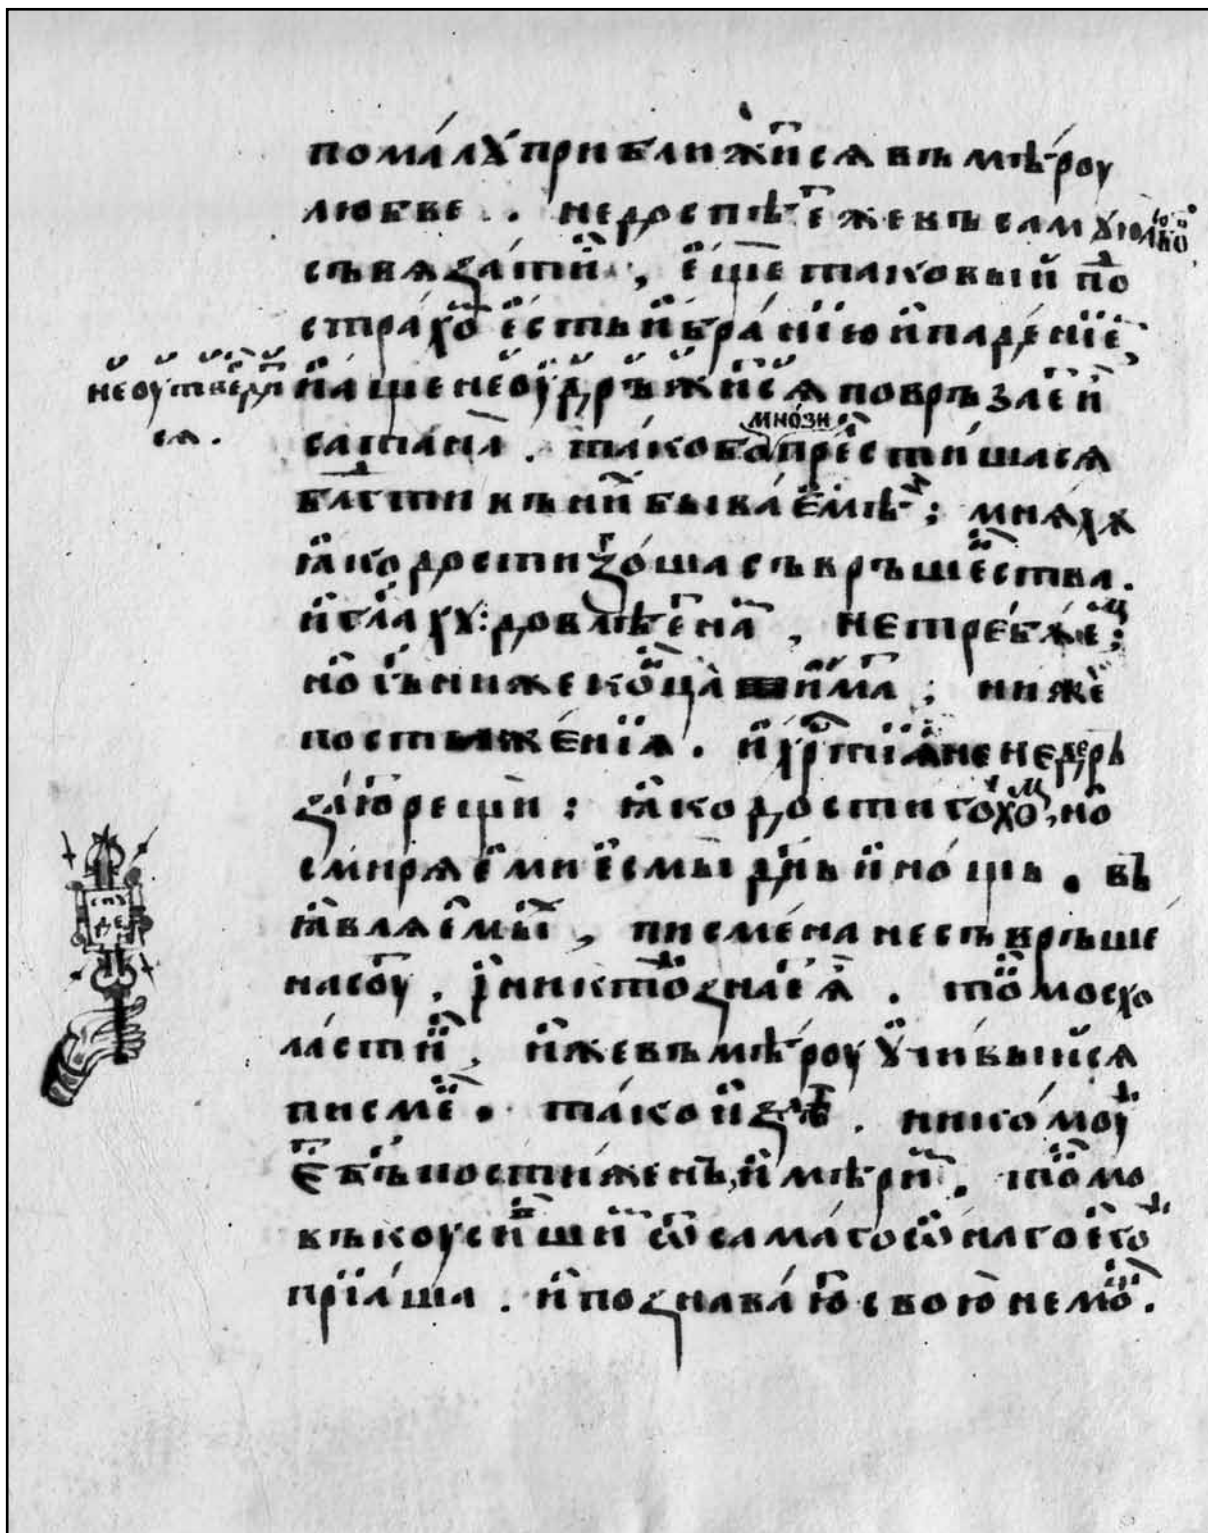 помалꙋ приближисѧ въ мѣроу
любве .. не доспѣ еже въ самꙋю
съвѧзати , еще таковый по
страхо есть и бранїю и паденїе
не оутвердит и аще не оудръжисѧ поврьзае и
сѧ. сатана . тако бо мнози престишасѧ
блгсти къ ни бываемѣ ; мнѧхѫ
ꙗко достигоша съвръшества .
и глахꙋ : довлѣе на , не требꙋе ;
но гь ниже конца има ; ниже
постиженїа . и хртїане не дерь
заю рещи : ꙗко достигохо , но
смирѧеми есмы днь и нощь . въ
ꙗвлѧемы , писмена несъврьше
на соу . и никто знае ѧ . токмо схо
ласти , иже въ мѣроу ꙋчивыйсѧ
писме . тако и зде . никомоу
є бъ постижень, и мѣри . токмо
въкоусивши ѿ самаго ѿнаго его
прїаша . и познаваю свою немо .